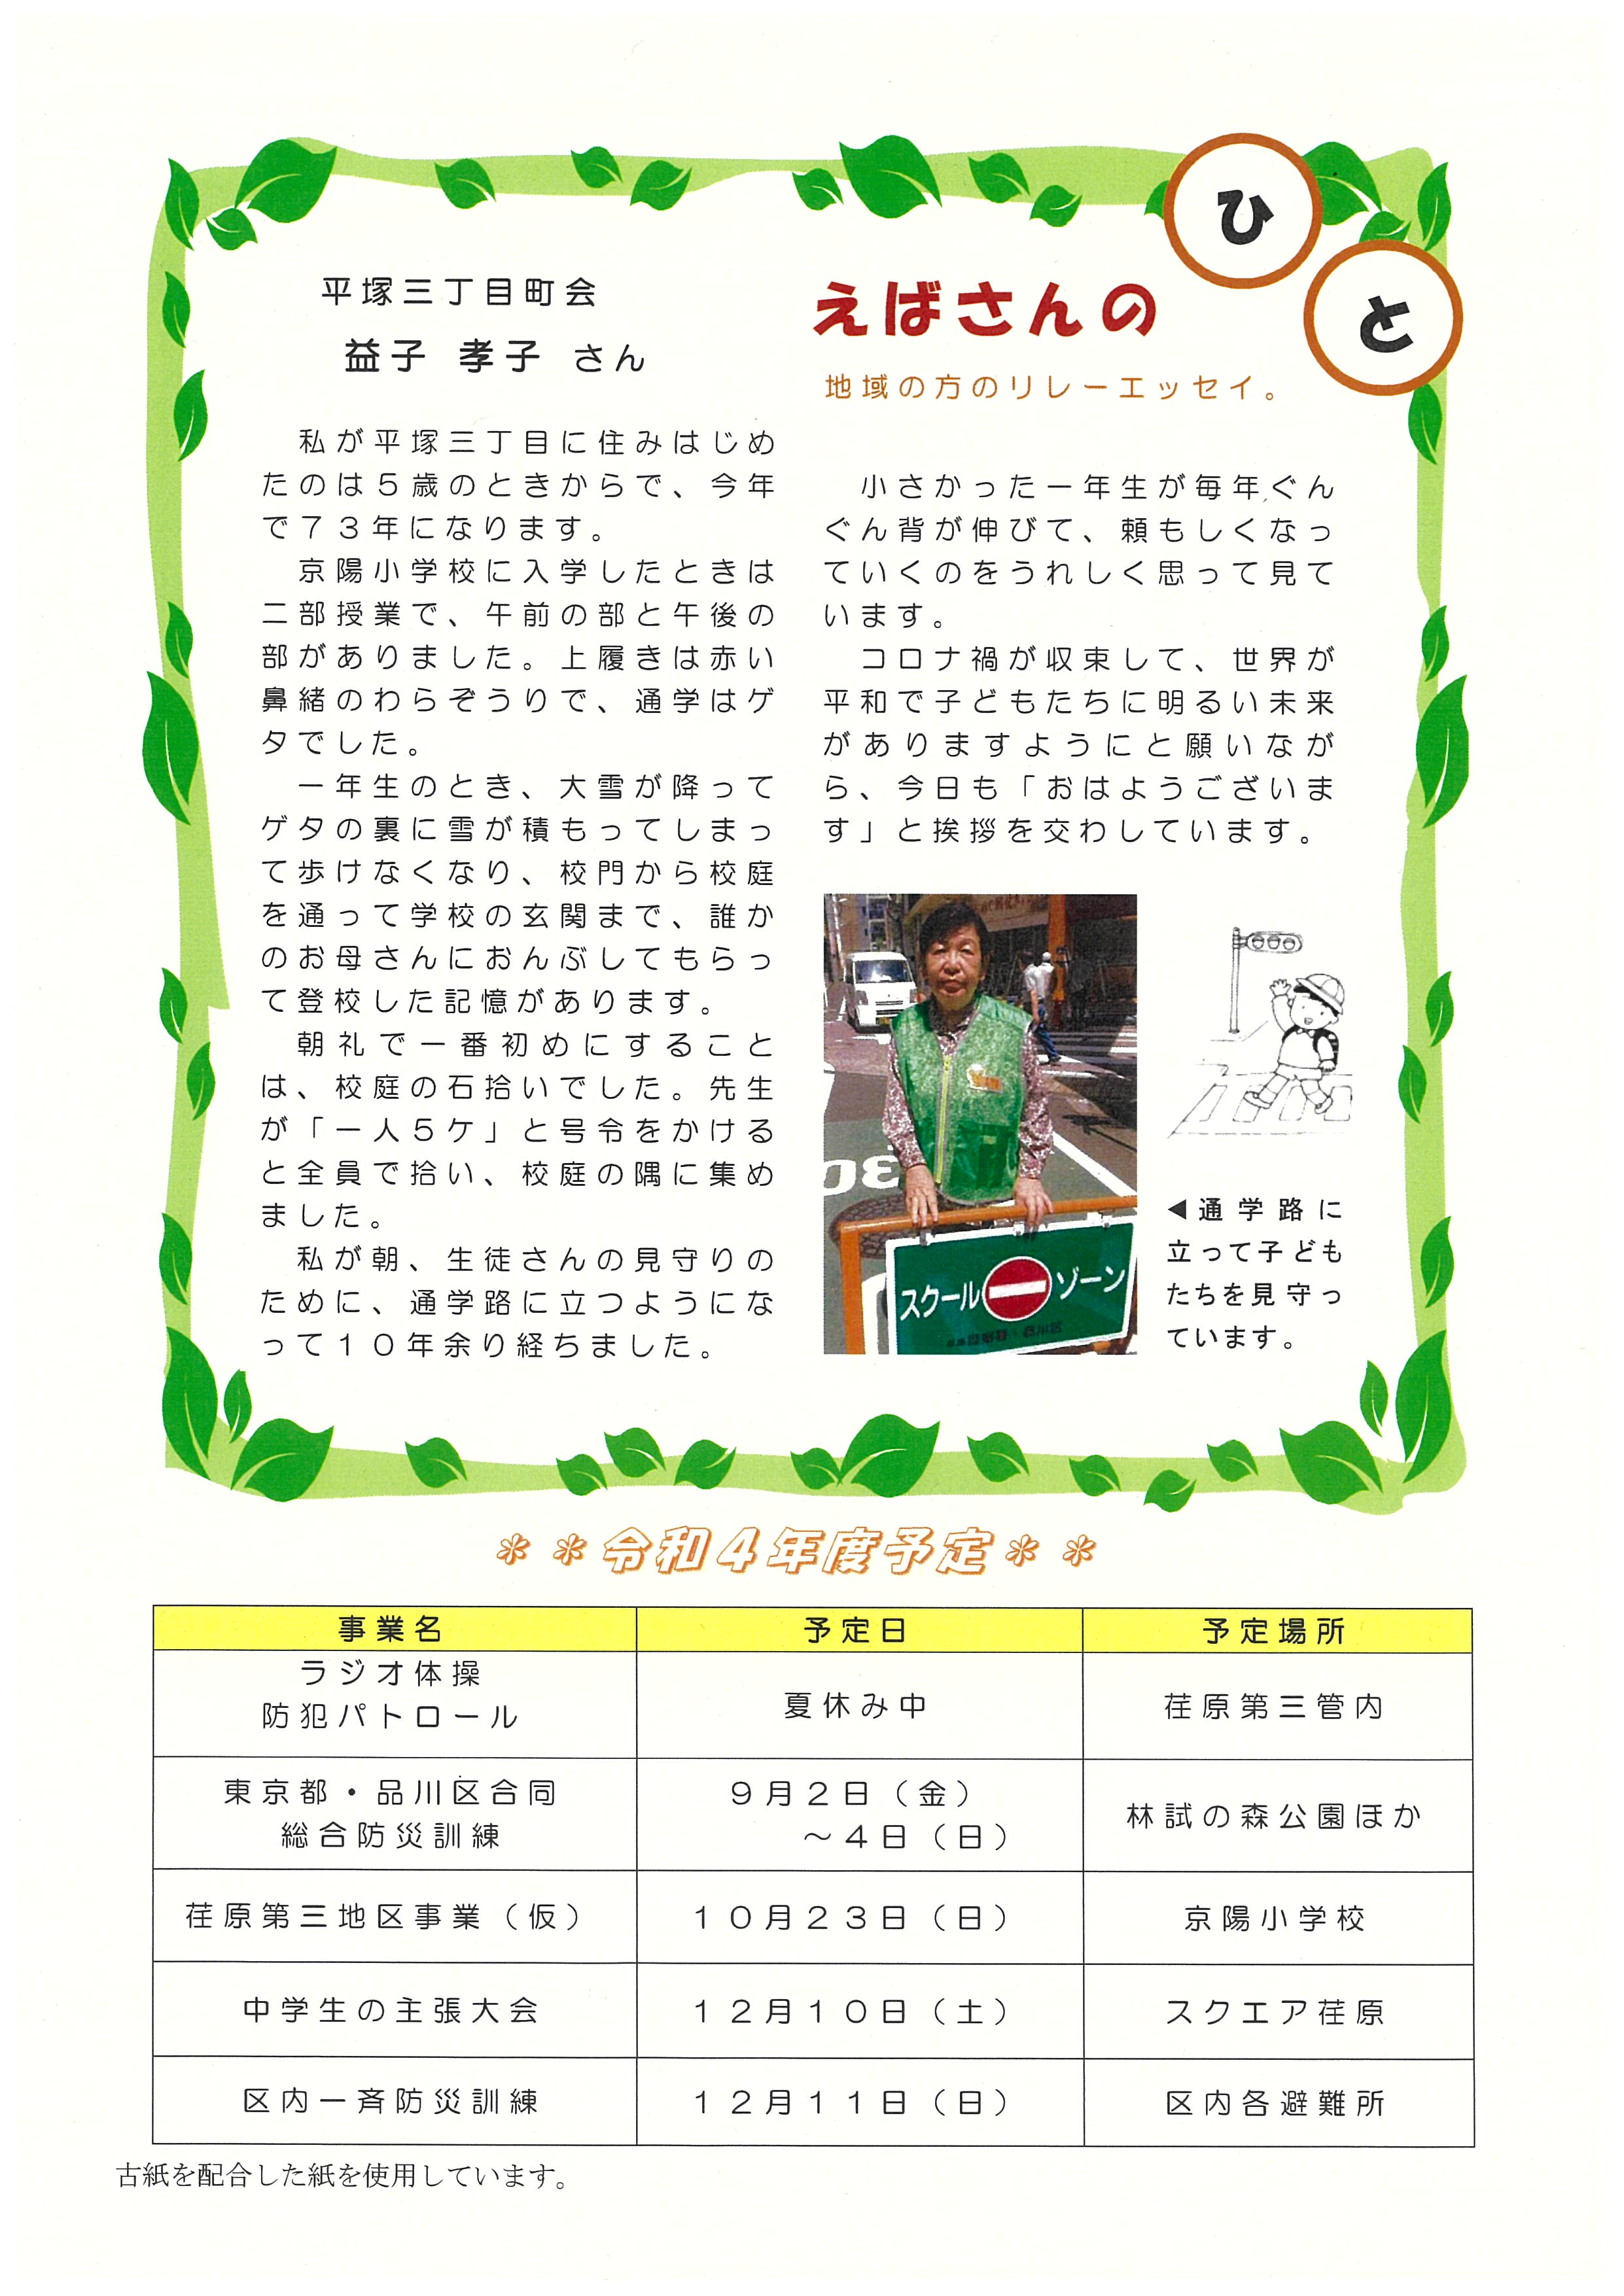 えばさんの
ひ
と
地域の方のリレーエッセイ。
平塚三丁目町会
益子 孝子 さん
私が平塚三丁目に住みはじめ
たのは５歳のときからで、今年
で７３年になります。
京陽小学校に入学したときは
二部授業で、午前の部と午後の
部がありました。上履きは赤い
鼻緒のわらぞうりで、通学はゲ
タでした。
一年生のとき、大雪が降って
ゲタの裏に雪が積もってしまっ
て歩けなくなり、校門から校庭
を通って学校の玄関まで、誰か
のお母さんにおんぶしてもらっ
て登校した記憶があります。
朝礼で一番初めにすること
は、校庭の石拾いでした。先生
が「一人５ケ」と号令をかける
と全員で拾い、校庭の隅に集め
ました。
私が朝、生徒さんの見守りの
ために、通学路に立つようにな
って１０年余り経ちました。
小さかった一年生が毎年ぐん
ぐん背が伸びて、頼もしくなっ
ていくのをうれしく思って見て
います。
コロナ禍が収束して、世界が
平和で子どもたちに明るい未来
がありますようにと願いなが
ら、今日も「おはようございま
す」と挨拶を交わしています。
スクール ゾーン
◀通学路に
立って子ども
たちを見守っ
ています。
＊＊令和４年度予定＊＊
事業名 予定日 予定場所
ラジオ体操
防犯パトロール
夏休み中
荏原第三管内
東京都・品川区合同
総合防災訓練
９月２日（金）
～４日（日）
林試の森公園ほか
荏原第三地区事業（仮） １０月２３日（日） 京陽小学校
中学生の主張大会 １２月１０日（土） スクエア荏原
区内一斉防災訓練 １２月１１日（日） 区内各避難所
古紙を配合した紙を使用しています。